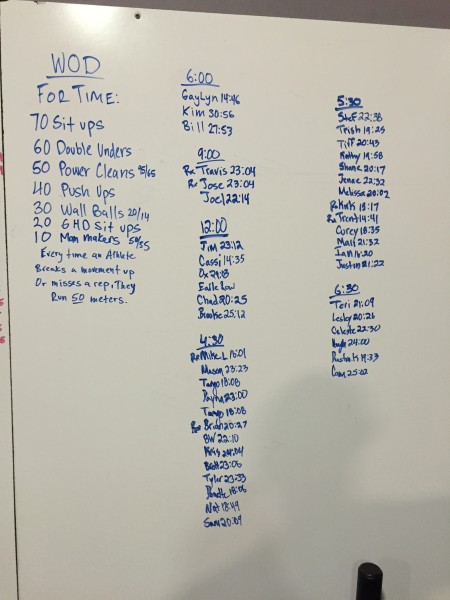 WOD
FOR TIME:
70 Sit ups
60 Double Unders
50 Power Cleans 95/65
40 Push Ups
30 Wall Balls 20/14
20 GHD Sit ups
10 Man makers 50/35
Every time an Athlete
Breaks a movement up
Or misses a rep, They
Run 50 meters.
6:00
GayLyn 14:46
Kim 30:56
Bill 27:53
9:00
Rx Travis 23:04
Rx Jose 23:04
Joel 22:14
12:00
Jim 23:12
Cassi 14:35
Ox
Chad 20:25
Brooke 25:12
4:30
Rx Mike L 16:01
Mason 23:23
Tango 18:08
23:00
Tango 18:08
Rx Brian 20:27
BW 22:10
Kris
Brett 23:06
Tyler 23:33
18:06
Nat 18:49
Sam 20:09
5:30
Stef 22:38
Trish 19:25
Tiff 20:43
Kathy 19:58
Shane 20:17
Jenae 22:32
Melissa 20:02
Rx Kirk 18:17
Rx Trent 14:41
Corey 18:35
Matt 21:32
Ian 16:20
Justin 21:22
6:30
Teri 21:09
Lesley 20:26
Celeste 22:30
24:00
19:33
Cam 25:02